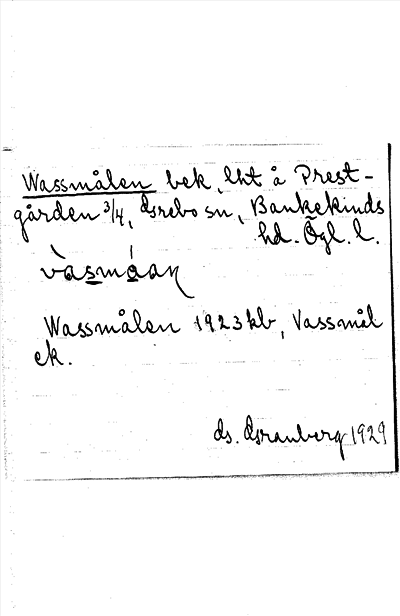 Wassmålen bek, lht å Prest-
gården 3/4, Grebo sn, Bankekinds
hd. Ögl. l.
vàsmåan
Wassmålen 1923 kb, Vassmål
ek.
G. Granberg 1929